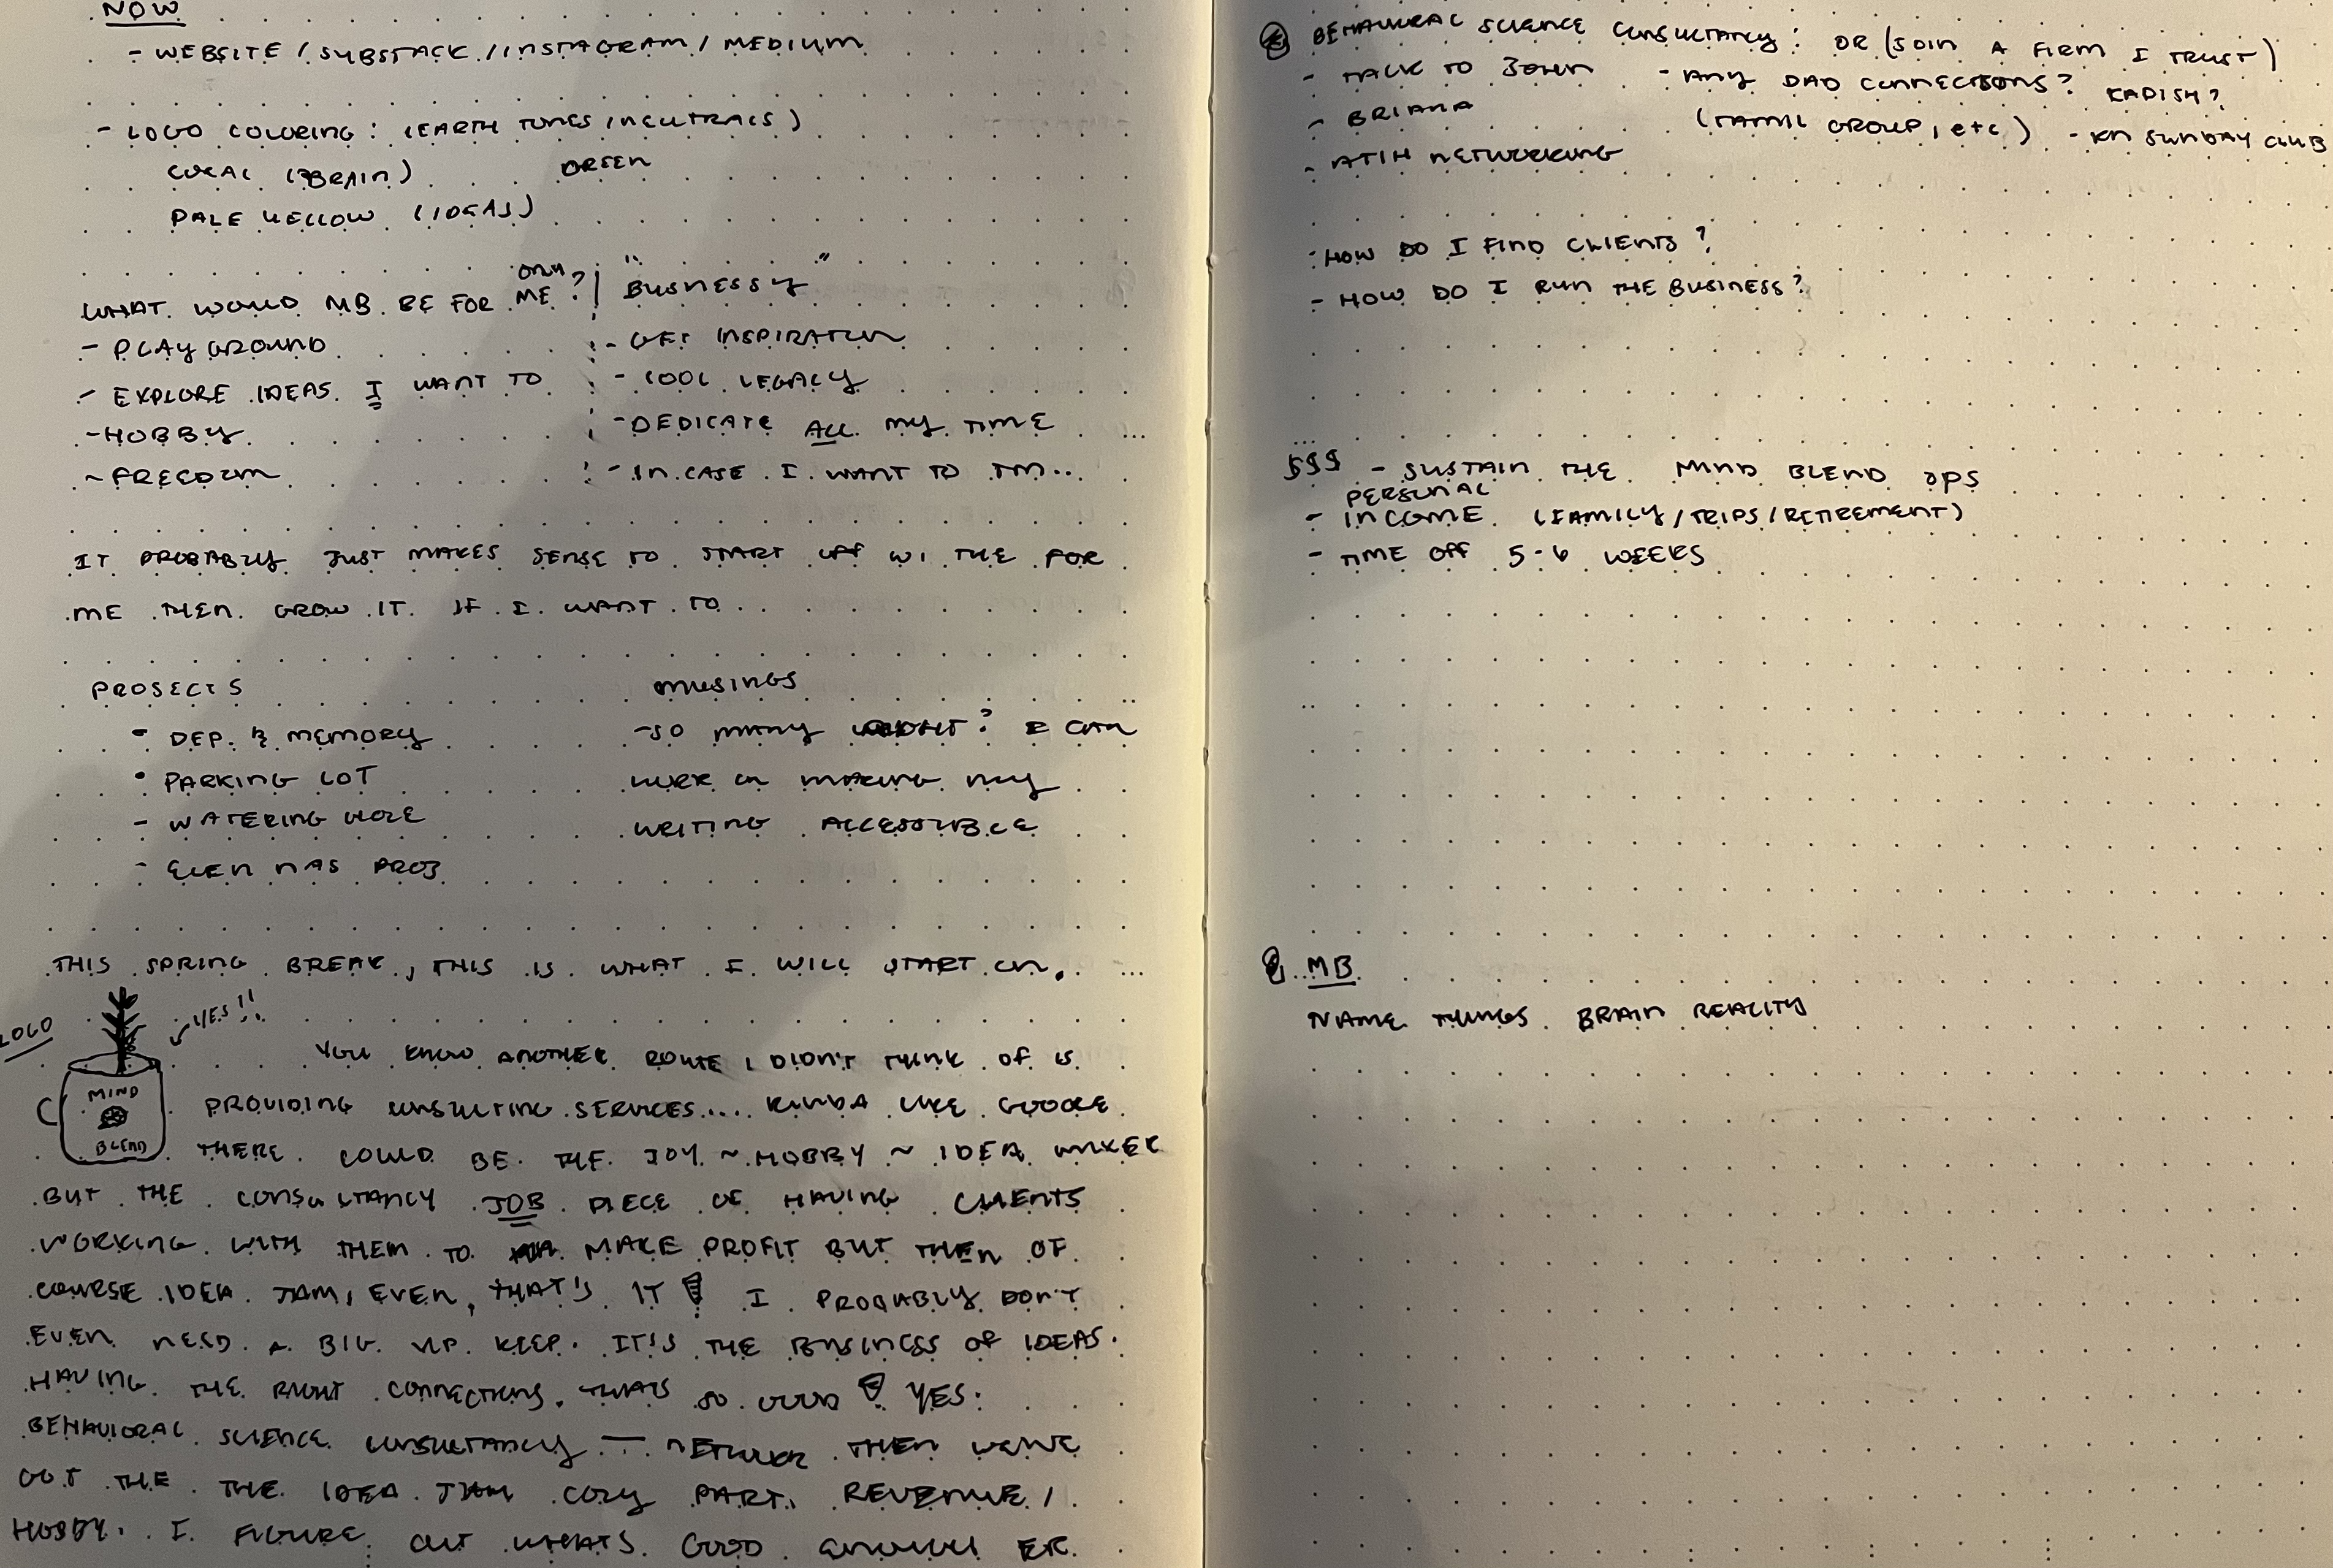 NOW
- WEBSITE / SUBSTACK / INSTAGRAM / MEDIUM
- LOGO COLORING: (EARTH TONES / NEUTRALS)
CORAL (BRAIN) GREEN
PALE YELLOW (IDEAS)
WHAT WOULD MB BE FOR ONLY ME?
- PLAYGROUND
- EXPLORE IDEAS I WANT TO
- HOBBY
- FREEDOM
"BUSINESSY"
- GET INSPIRATION
- COOL LEGACY
- DEDICATE ALL MY TIME
- IN CASE I WANT TO
IT PROBABLY JUST MAKES SENSE TO START OFF W/ THE FOR
ME THEN GROW IT IF I WANT TO.
PROJECTS
• DEP. & MEMORY
• PARKING LOT
- WATERING HOLE
- PROJ
MUSINGS
- SO MANY I CAN
WORK ON MAKING MY
WRITING ACCESSIBLE
THIS SPRING BREAK, THIS IS WHAT I WILL START ON.
LOGO
YES!!
MIND
BLEND
YOU KNOW ANOTHER ROUTE I DIDN'T THINK OF IS
PROVIDING CONSULTING SERVICES.... KINDA LIKE GOOGLE
THERE COULD BE THE JOY ~ HOBBY ~ IDEA
BUT THE CONSULTANCY JOB PIECE OF HAVING CLIENTS
WORKING WITH THEM TO MAKE PROFIT BUT THEN OF
COURSE IDEA JAM, EVEN, THAT'S IT! I PROBABLY DON'T
EVEN NEED A BIG UP KEEP. IT'S THE BUSINESS OF IDEAS.
HAVING THE RIGHT CONNECTIONS. THATS SO GOOD! YES:
BEHAVIORAL SCIENCE CONSULTANCY — NETWORK THEN WE'VE
GOT THE THE IDEA JAM COZY PART. REVENUE /
HOBBY. I FIGURE OUT WHATS GOOD ENOUGH
BEHAVIORAL SCIENCE CONSULTANCY: OR (JOIN A FIRM I TRUST)
- TALK TO - ANY DAD CONNECTIONS? KADISH?
- BRIANA (TAMIL GROUP, etc) - KN SUNDAY CLUB
- ATIH NETWORKING
- HOW DO I FIND CLIENTS?
- HOW DO I RUN THE BUSINESS?
$$$ - SUSTAIN THE MIND BLEND OPS
PERSONAL
- INCOME (FAMILY / TRIPS / RETIREMENT)
- TIME OFF 5-6 WEEKS
MB
NAME THINGS BRAIN REALITY